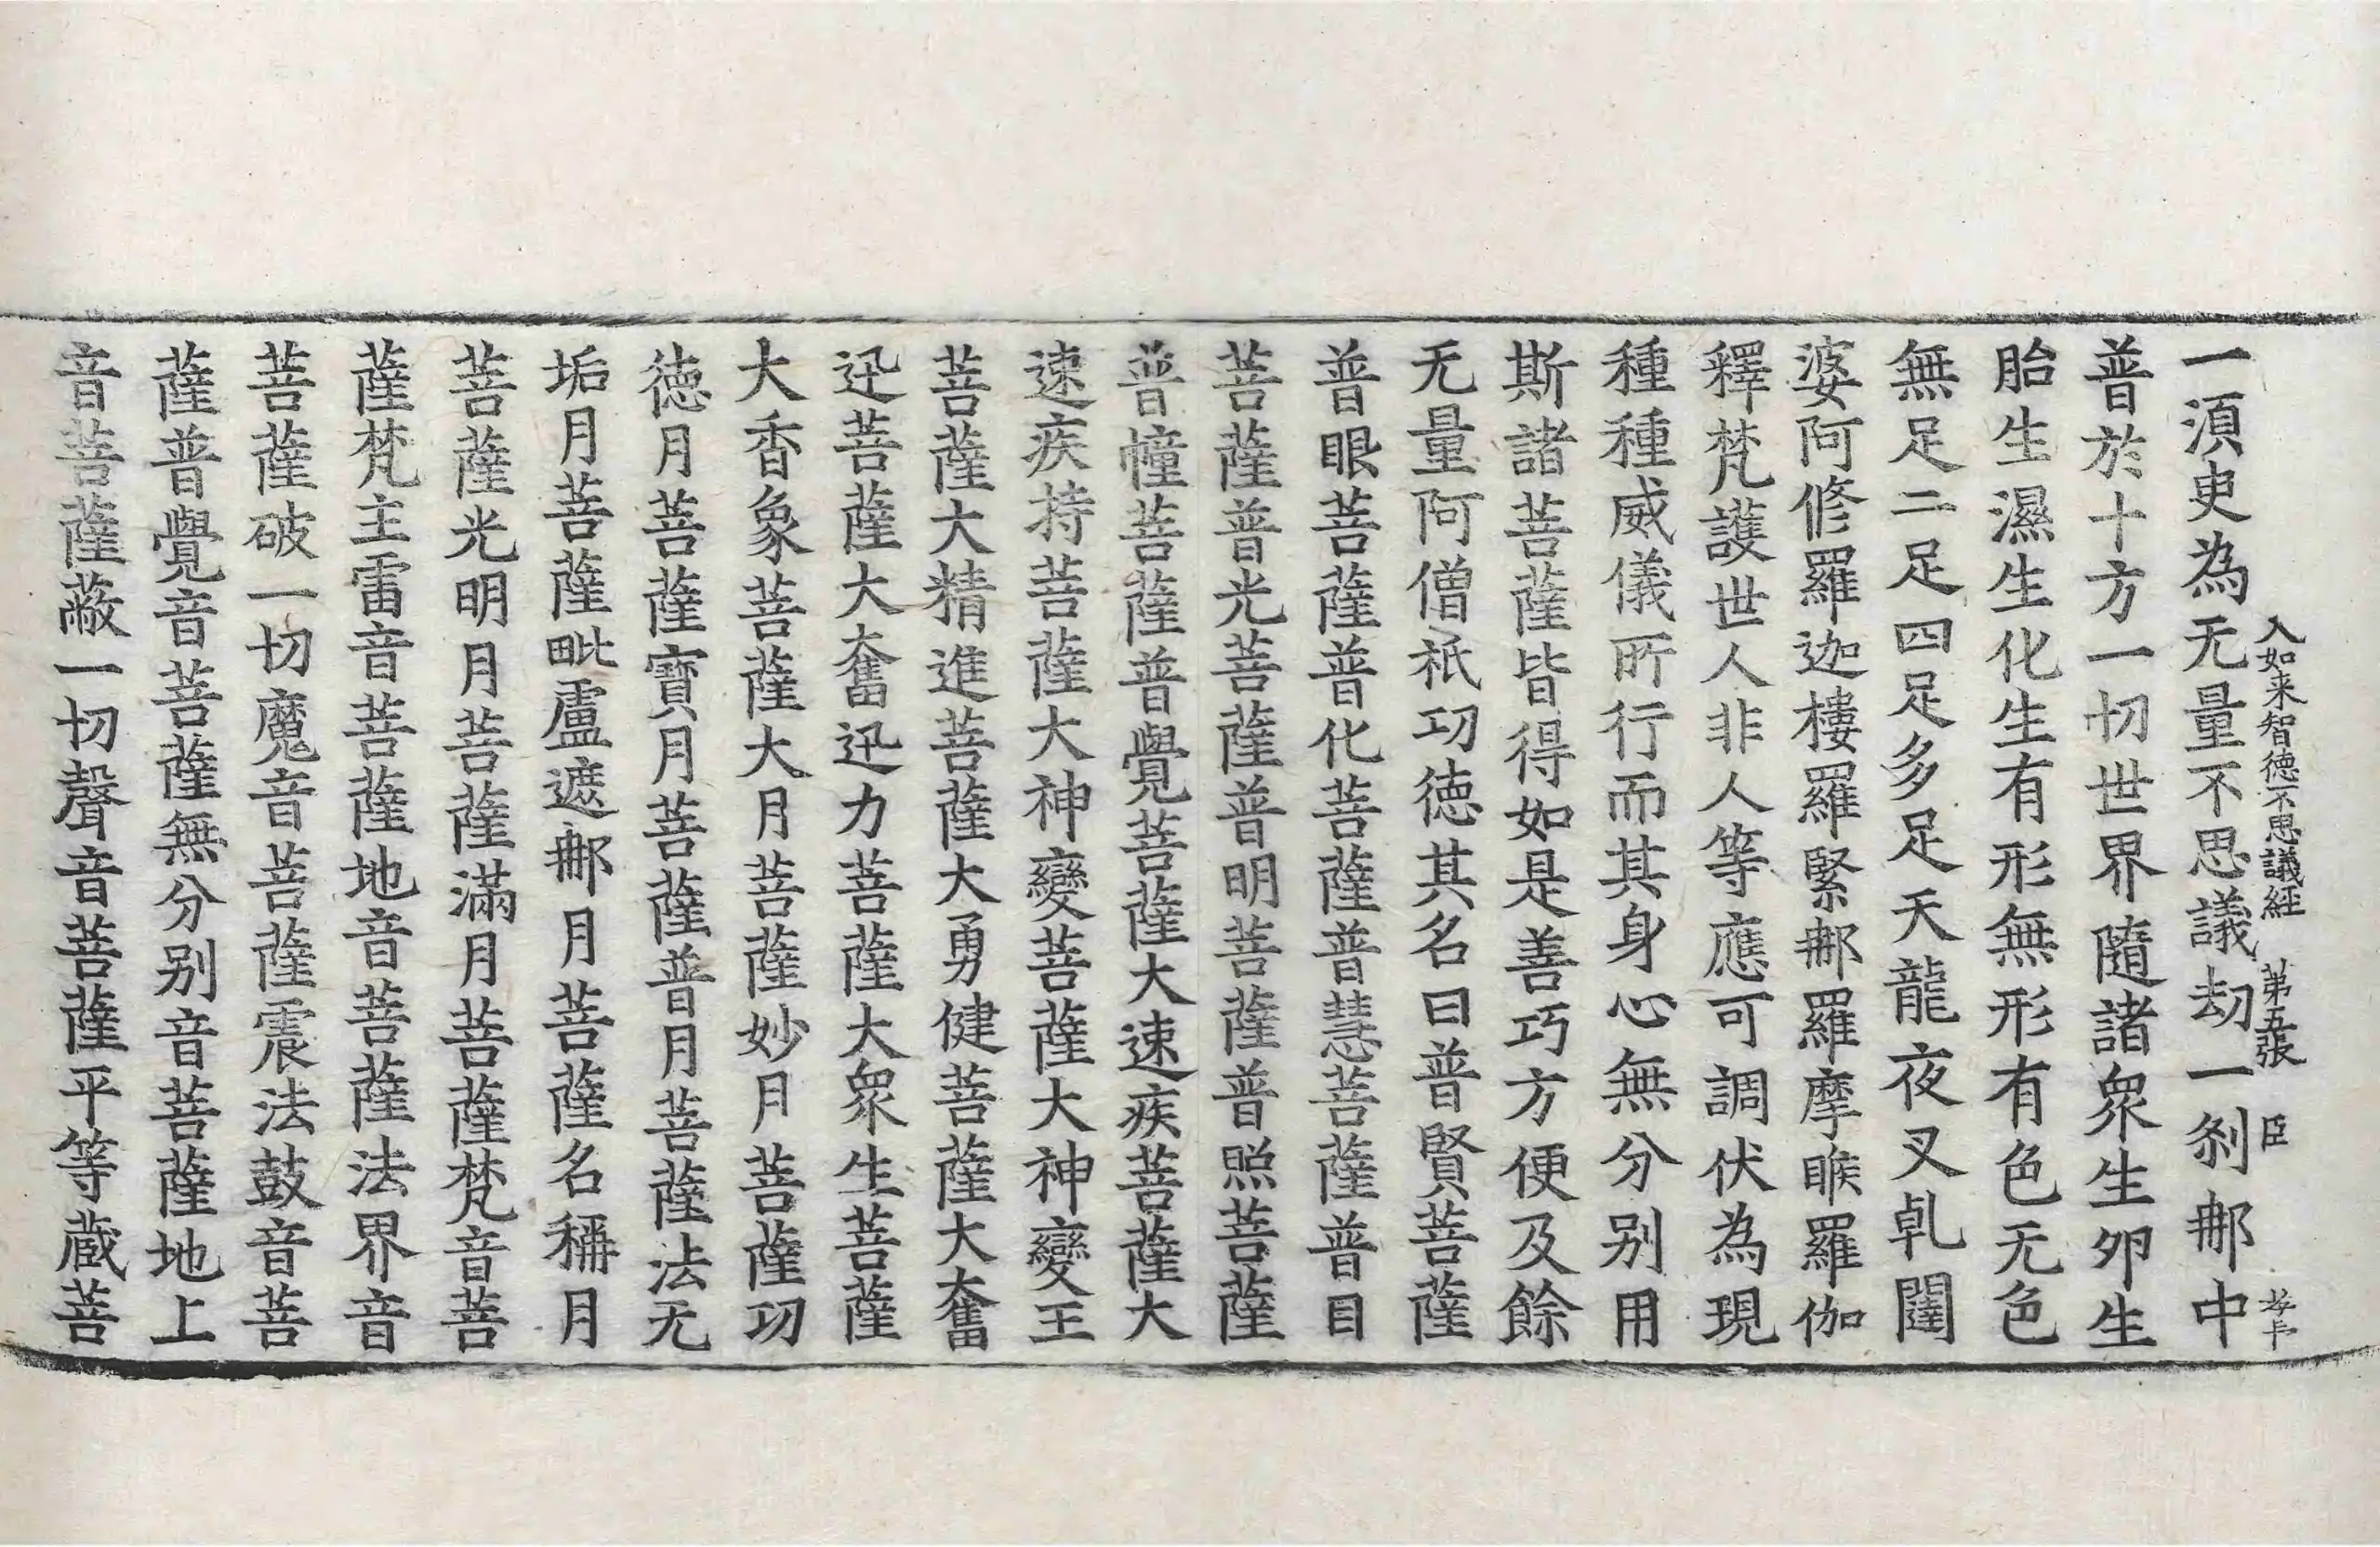 入如来智德不思議經 第五張 臣
一須㬰為无量不思議劫一剎𨙻中
普於十方一切世界隨諸眾生卵生
胎生濕生化生有形無形有色无色
無足二足四足多足天龍夜叉乹闥
婆阿修羅迦樓羅緊𨙻羅摩睺羅伽
釋梵護世人非人等應可調伏為現
種種威儀所行而其身心無分别用
斯諸菩薩皆得如是善巧方便及餘
无量阿僧祇功徳其名曰普賢菩薩
普眼菩薩普化菩薩普慧菩薩普目
菩薩普光菩薩普明菩薩普照菩薩
普幢菩薩普覺菩薩大速疾菩薩大
速疾持菩薩大神變菩薩大神變王
菩薩大精進菩薩大勇健菩薩大奮
迅菩薩大奮迅力菩薩大眾生菩薩
大香象菩薩大月菩薩妙月菩薩功
徳月菩薩寶月菩薩普月菩薩法无
垢月菩薩毗盧遮𨙻月菩薩名稱月
菩薩光明月菩薩滿月菩薩梵音菩
薩梵主雷音菩薩地音菩薩法界音
菩薩破一切魔音菩薩震法鼓音菩
薩普覺音菩薩無分别音菩薩地上
音菩薩蔽一切聲音菩薩平等蔵菩